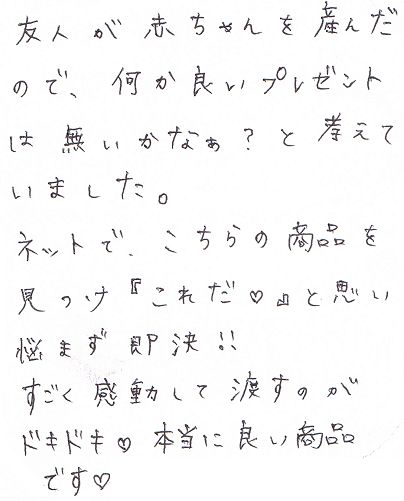 友人が赤ちゃんを産んだ
ので、何か良いプレゼント
は無いかなぁ?と考えて
いました。
ネットで、こちらの商品を
見つけ『これだ♡』と思い
悩まず即決!!
すごく感動して渡すのが
ドキドキ♡本当に良い商品
です♡